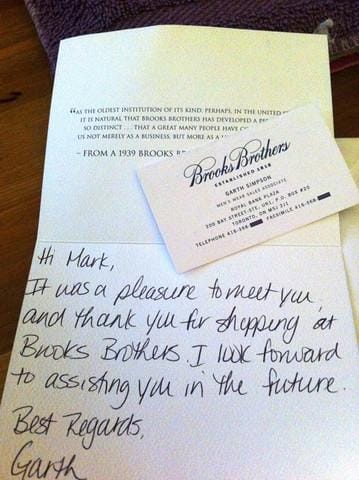 “AS THE OLDEST INSTITUTION OF ITS KIND, PERHAPS, IN THE UNITED
IT IS NATURAL THAT BROOKS BROTHERS HAS DEVELOPED A
SO DISTINCT . . . THAT A GREAT MANY PEOPLE HAVE
US NOT MERELY AS A BUSINESS, BUT MORE AS A
– FROM A 1939 BROOKS
Brooks Brothers
ESTABLISHED 1818
GARTH SIMPSON
MEN'S WEAR SALES ASSOCIATE
ROYAL BANK PLAZA
200 BAY STREET-STE, UR1, P.O. BOX #20
TORONTO, ON M5J 2J1
TELEPHONE 416-368 FACSIMILE 416-368
Hi Mark,
It was a pleasure to meet you
and thank you for shopping at
Brooks Brothers. I look forward
to assisting you in the future.
Best Regards,
Garth